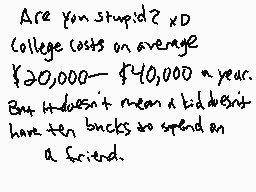 Are you stupid? xD
College costs on average
$20,000 - $40,000 a year.
But it doesn't mean a kid doesn't
have ten bucks to spend on
a friend.